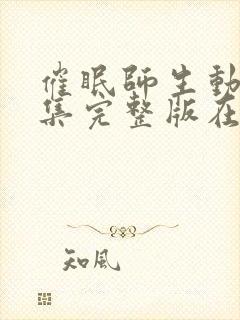 催眠師生動
集完整版在
知風